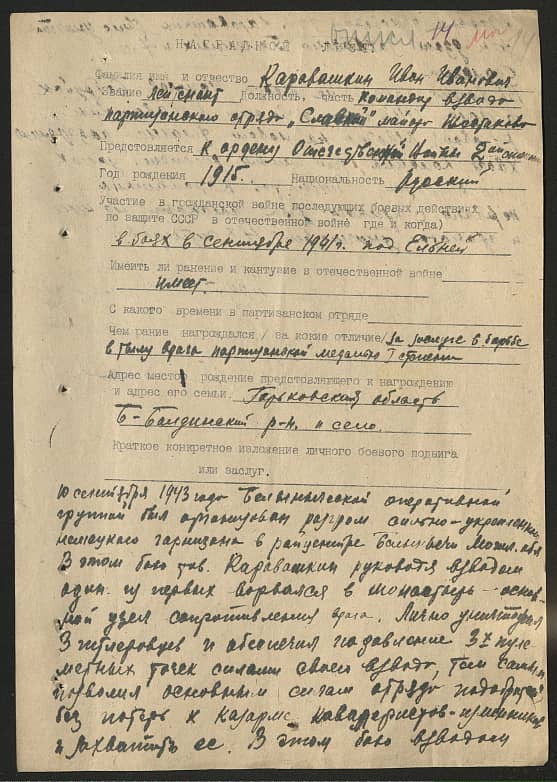 14
НАГРАДНОЙ
Фамилия имя и отчество Каравашкин Иван Иванович
Звание лейтенант Должность, часть командир взвода
партизанского отряда „Славный" майора
Предствляется к ордену Отечественной Войны 2ой степени
Год рождения 1915г. Национальность Русский
Участие в гражданской войне последующих боевых действиях
по защите СССР в отечественной войне где и когда)
в боях в сентябре 1941г. под Ельней
Имеить ли ранение и кантузие в отечественной войне
имеет.
С какого времени в партизанском отряде
Чем рание нагрождался / за кокие отличие/ за заслуги в борьбе
в тылу врага партизанской медалью I степени
Адрес местор рождение предстовляетого к нагрождению
и адрес его семьи. Горьковский область
Б-Болдинский р-н. и село.
Краткое конкретное изложение личного боевого подвига
или заслуг.
10 сентября 1943 года оперативной
группой был организован разгром сильно-укрепленн.
немецкого гарнизона в райцентре Могил. обл
В этом бою тов. Каравашкин руководя взводом
один из первых ворвался в монастырь - основ-
ной узел сопротивления врага. Лично уничтожил
3 гитлеровцев и обеспечил подавление 3х пуле
метных точек силами своего взвода, тем самым
позволил основным силам отряда подобраться
без потерь к казарме
и захватить ее. В этом бою взводом